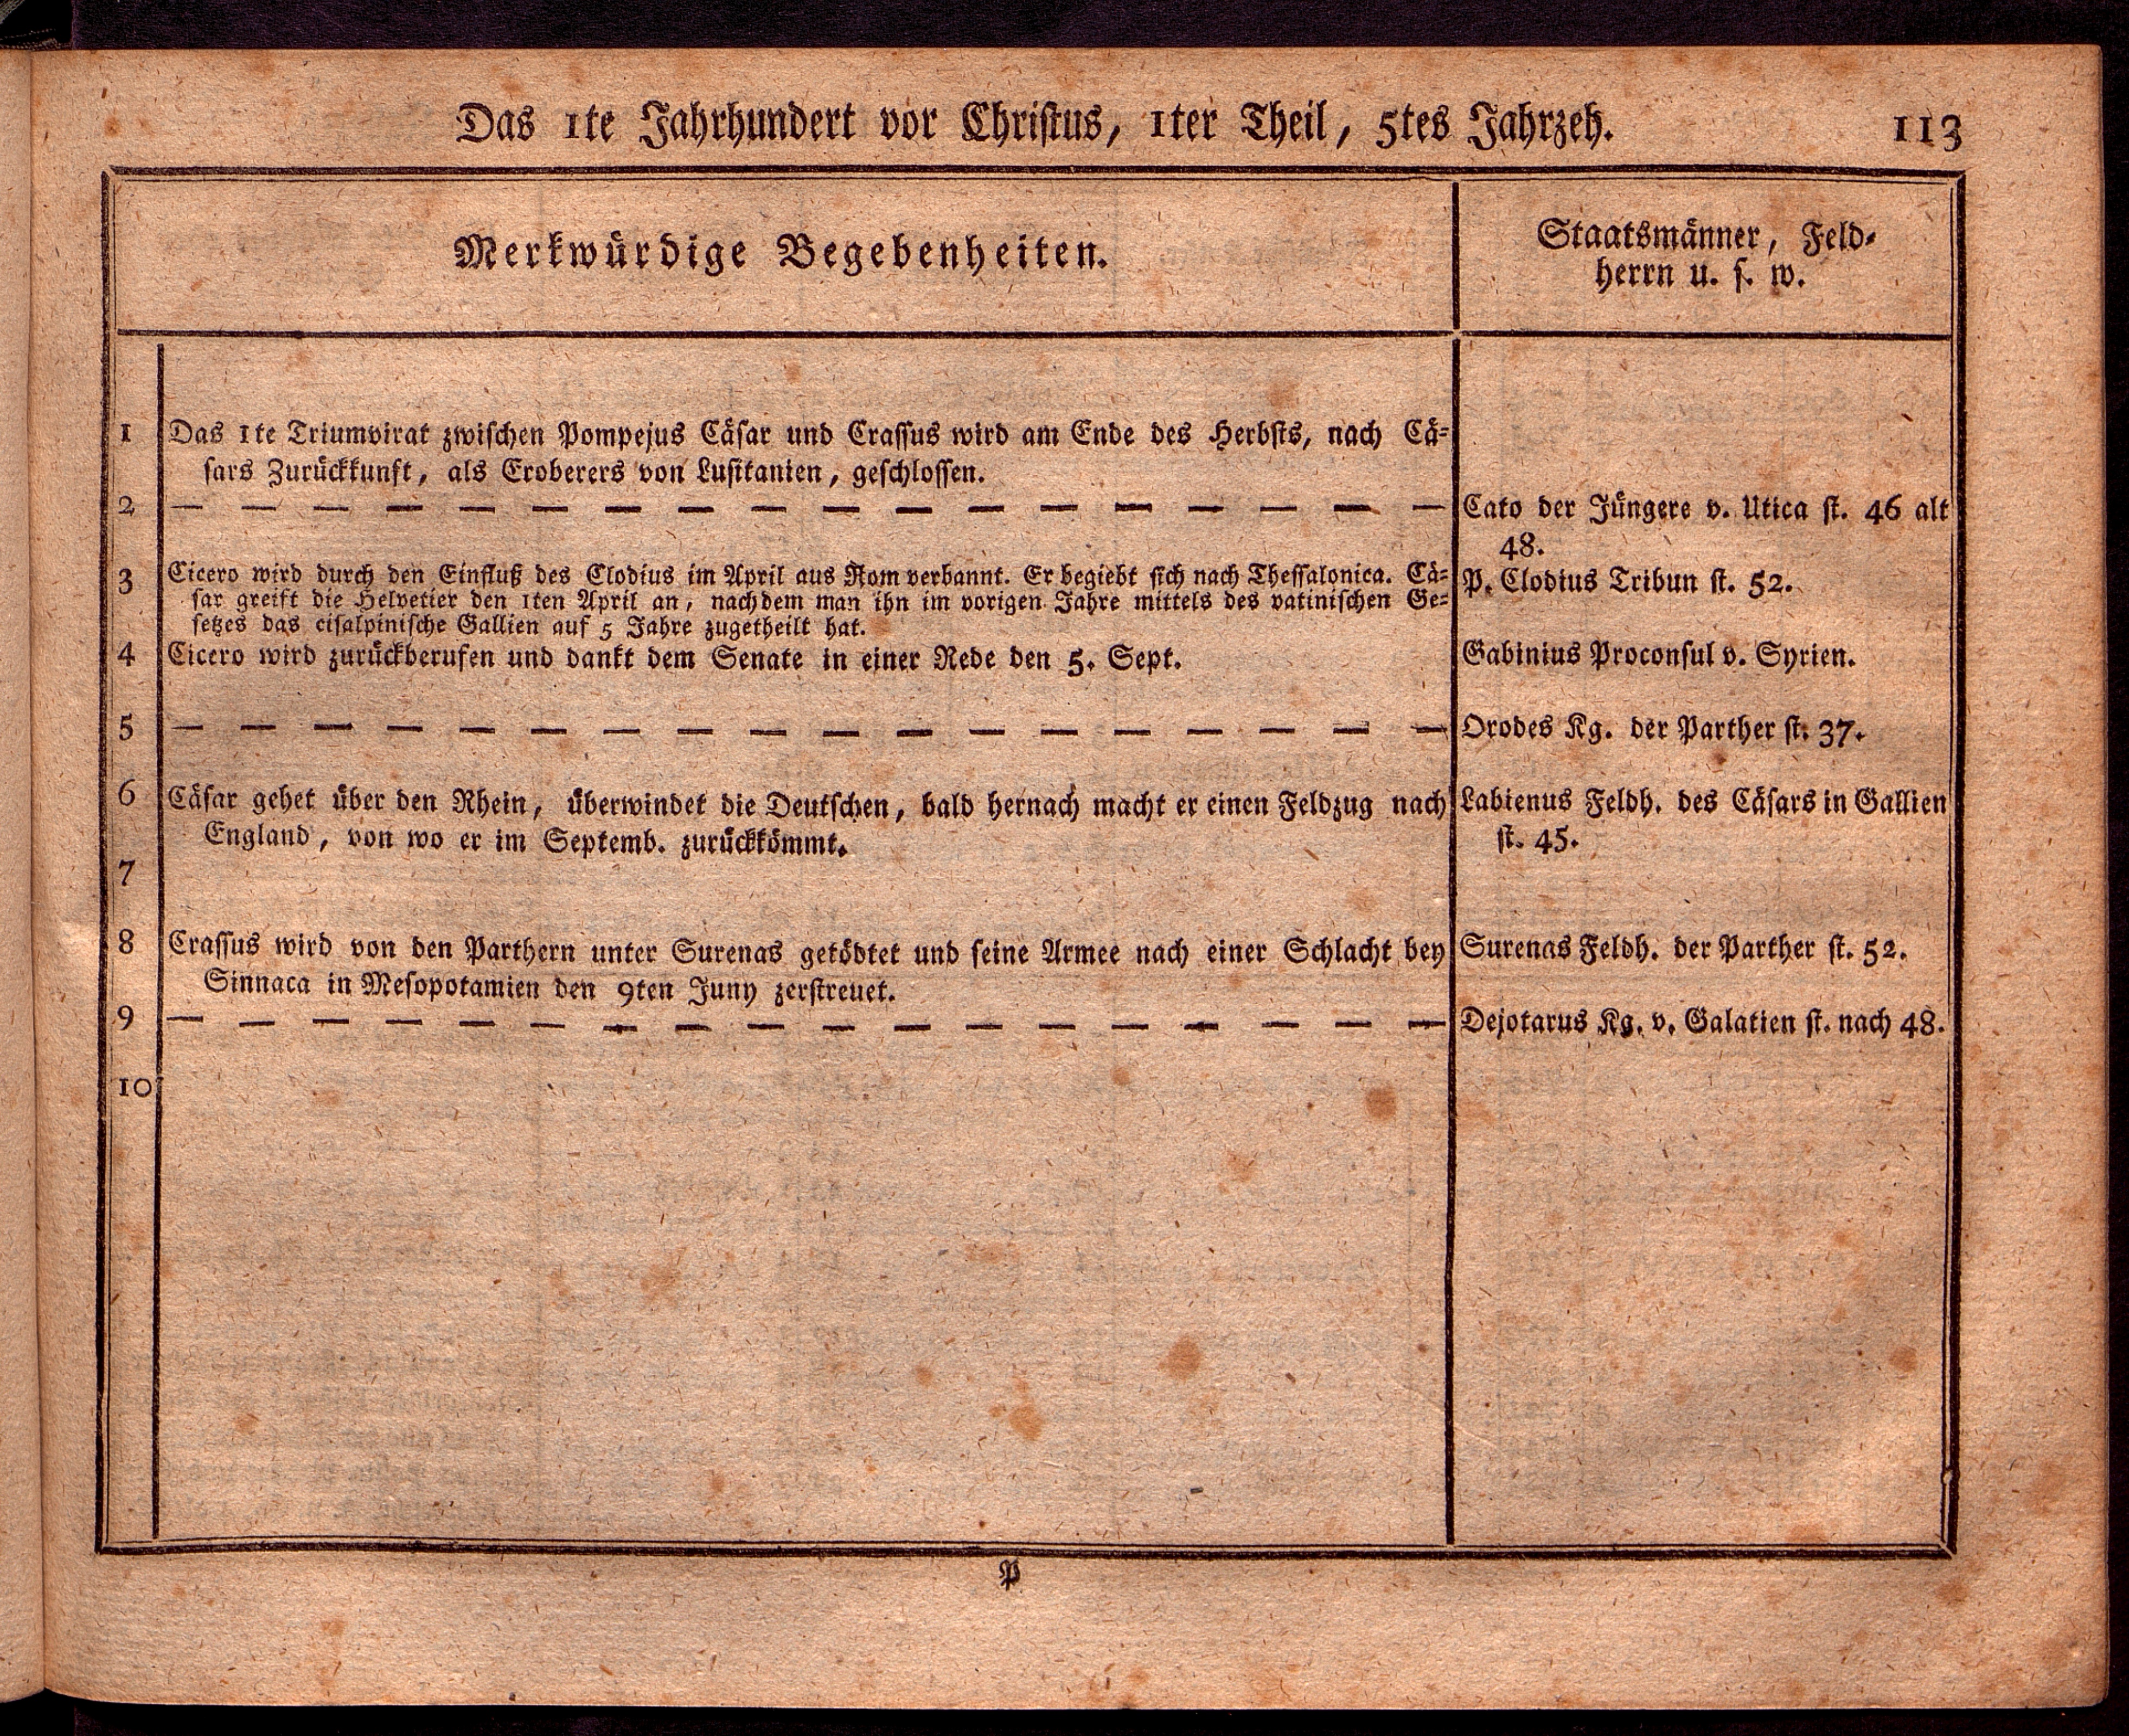 Das 1te Jahrhundert vor Christus, 1ter Theil, 5tes Jahrzeh. 113
Merkwürdige Begebenheiten.
Staatsmänner, Feld-
herrn u. s. w.
1 Das 1te Triumvirat zwischen Pompejus Cäsar und Crassus wird am Ende des Herbsts, nach Cä-
sars Zurückkunft, als Eroberers von Lusitanien, geschlossen.
2 — — — — — — — — — — — — — — — — — — Cato der Jüngere v. Utica st. 46 alt
48.
3 Cicero wird durch den Einfluß des Clodius im April aus Rom verbannt. Er begiebt sich nach Thessalonica. Cä-
sar greift die Helvetier den 1ten April an, nachdem man ihn im vorigen Jahre mittels des vatinischen Ge-
setzes das cisalpinische Gallien auf 5 Jahre zugetheilt hat.
P. Clodius Tribun st. 52.
4 Cicero wird zurückberufen und dankt dem Senate in einer Rede den 5. Sept. Gabinius Proconsul v. Syrien.
5 — — — — — — — — — — — — — — — — — — Orodes Kg. der Parther st. 37.
6 Cäsar gehet über den Rhein, überwindet die Deutschen, bald hernach macht er einen Feldzug nach
England, von wo er im Septemb. zurückkömmt.
Labienus Feldh. des Cäsars in Gallien
st. 45.
7
8 Crassus wird von den Parthern unter Surenas getödtet und seine Armee nach einer Schlacht bey
Sinnaca in Mesopotamien den 9ten Juny zerstreuet.
Surenas Feldh. der Parther st. 52.
9 — — — — — — — — — — — — — — — — — — Dejotarus Kg. v. Galatien st. nach 48.
10
P